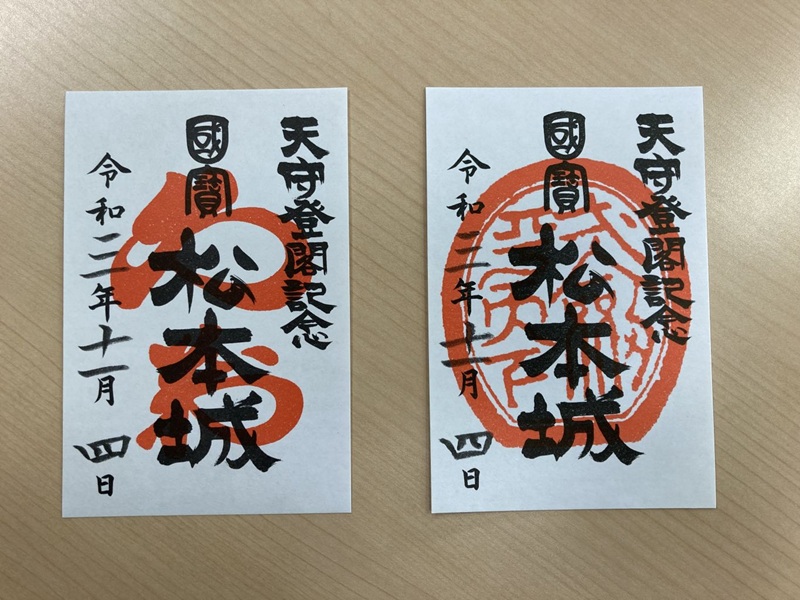 天守登閣記念
國寶
松本城
令和三年十一月四日
天守登閣記念
國寶
松本城
令和三年十一月四日